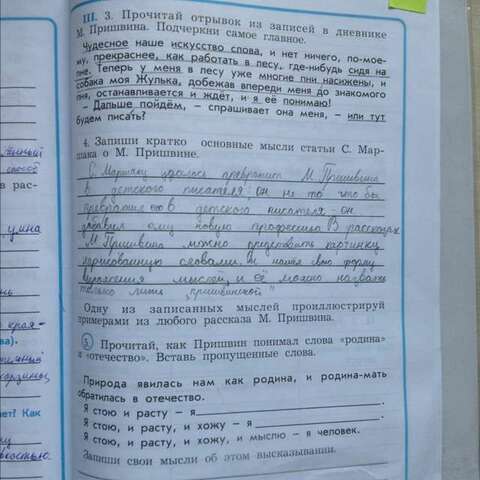 III. 3. Прочитай отрывок из записей в дневнике
М. Пришвина. Подчеркни самое главное.
Чудесное наше искусство слова, и нет ничего, по-мое-
му, прекраснее, как работать в лесу, где-нибудь сидя на
пне. Теперь у меня в лесу уже многие пни насижены, и
собака моя Жулька, добежав впереди меня до знакомого
пня, останавливается и ждёт, и я её понимаю!
– Дальше пойдём, – спрашивает она меня, – или тут
будем писать?
4. Запиши кратко основные мысли статьи С. Мар-
шака о М. Пришвине.
С. Маршаку удалось превратить М. Пришвина
в детского писателя; он не то что бы
превратил его в детского писателя, он
добавил ему новую профессию. В рассказах
М. Пришвина можно представить картинку,
нарисованную словами. Он нашёл свою форму
выражения мыслей, и её можно назвать
только лишь "пришвинской"
Одну из записанных мыслей проиллюстрируй
примерами из любого рассказа М. Пришвина.
5. Прочитай, как Пришвин понимал слова «родина»
и «отечество». Вставь пропущенные слова.
Природа явилась нам как родина, и родина-мать
обратилась в отечество.
Я стою и расту – я
Я стою, и расту, и хожу – я
Я стою, и расту, и хожу, и мыслю – я человек.
Запиши свои мысли об этом высказывании.
способ
в рас-
умна
края-
ва).
ает? Как